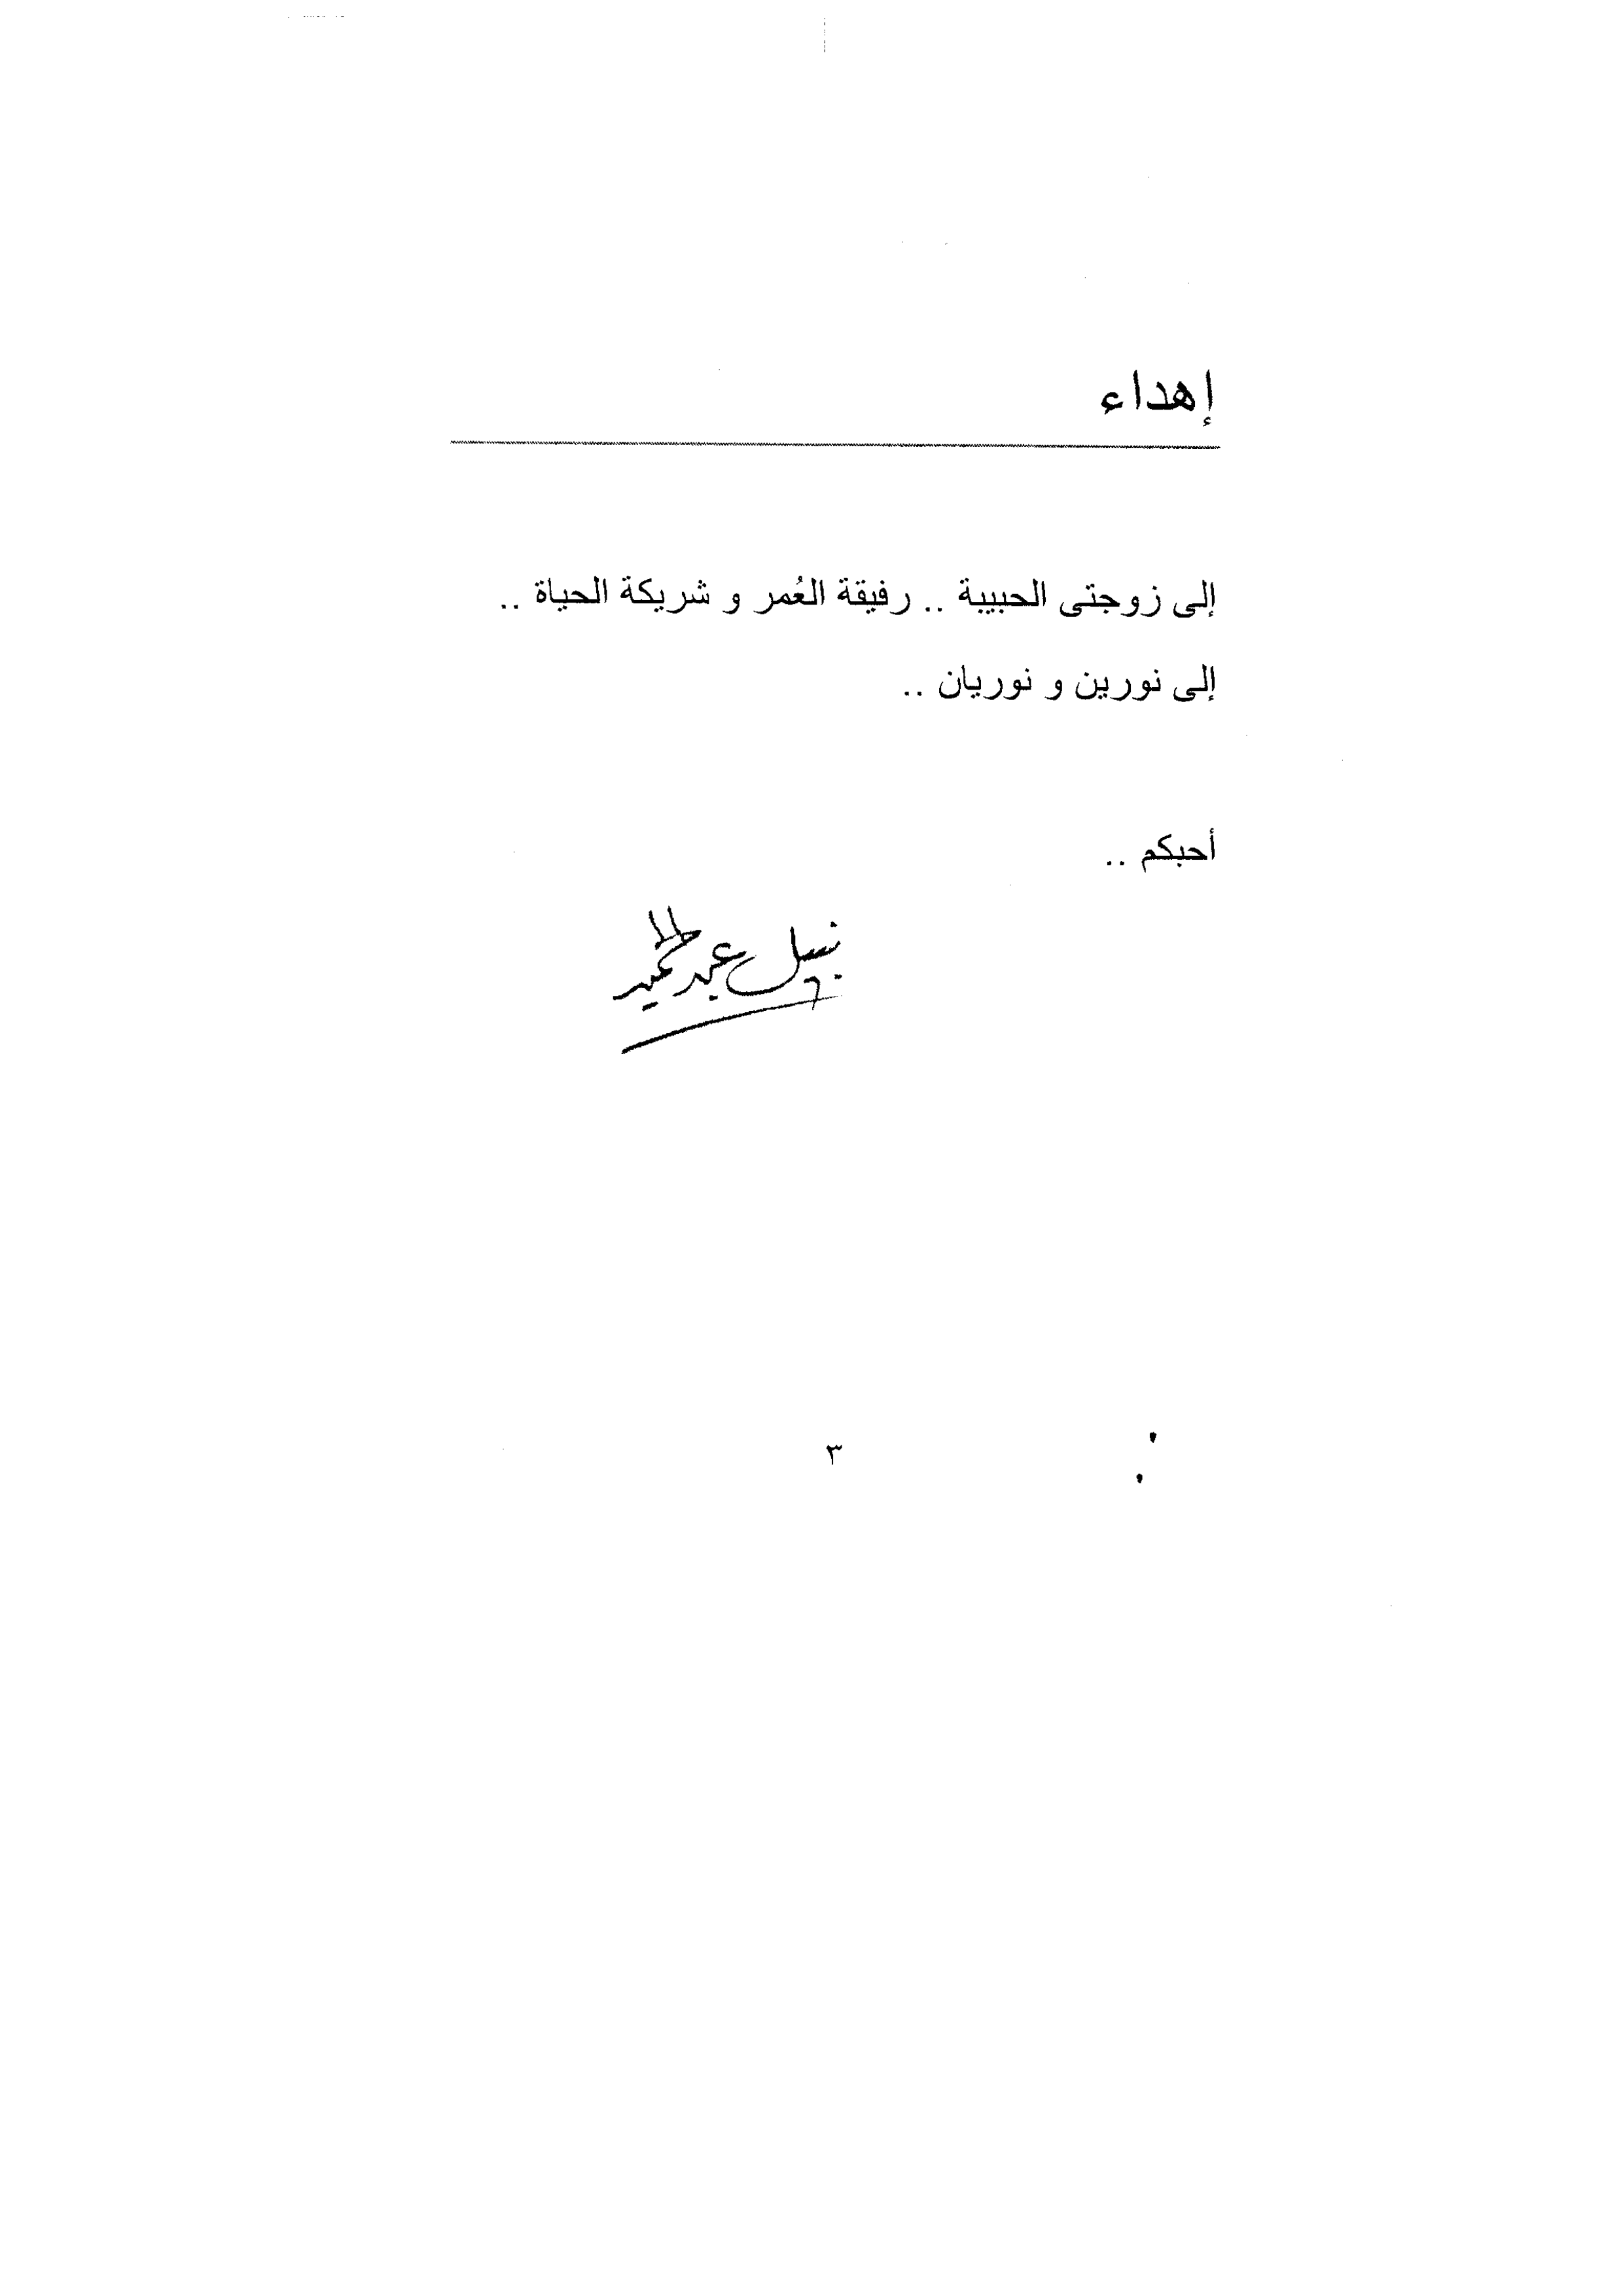 إهداء
إلى زوجتى الحبيبة .. رفيقة العُمر و شريكة الحياة ..
إلى نورين و نوريان ..
أحبكم ..
نبيل عبد الحميد
٣